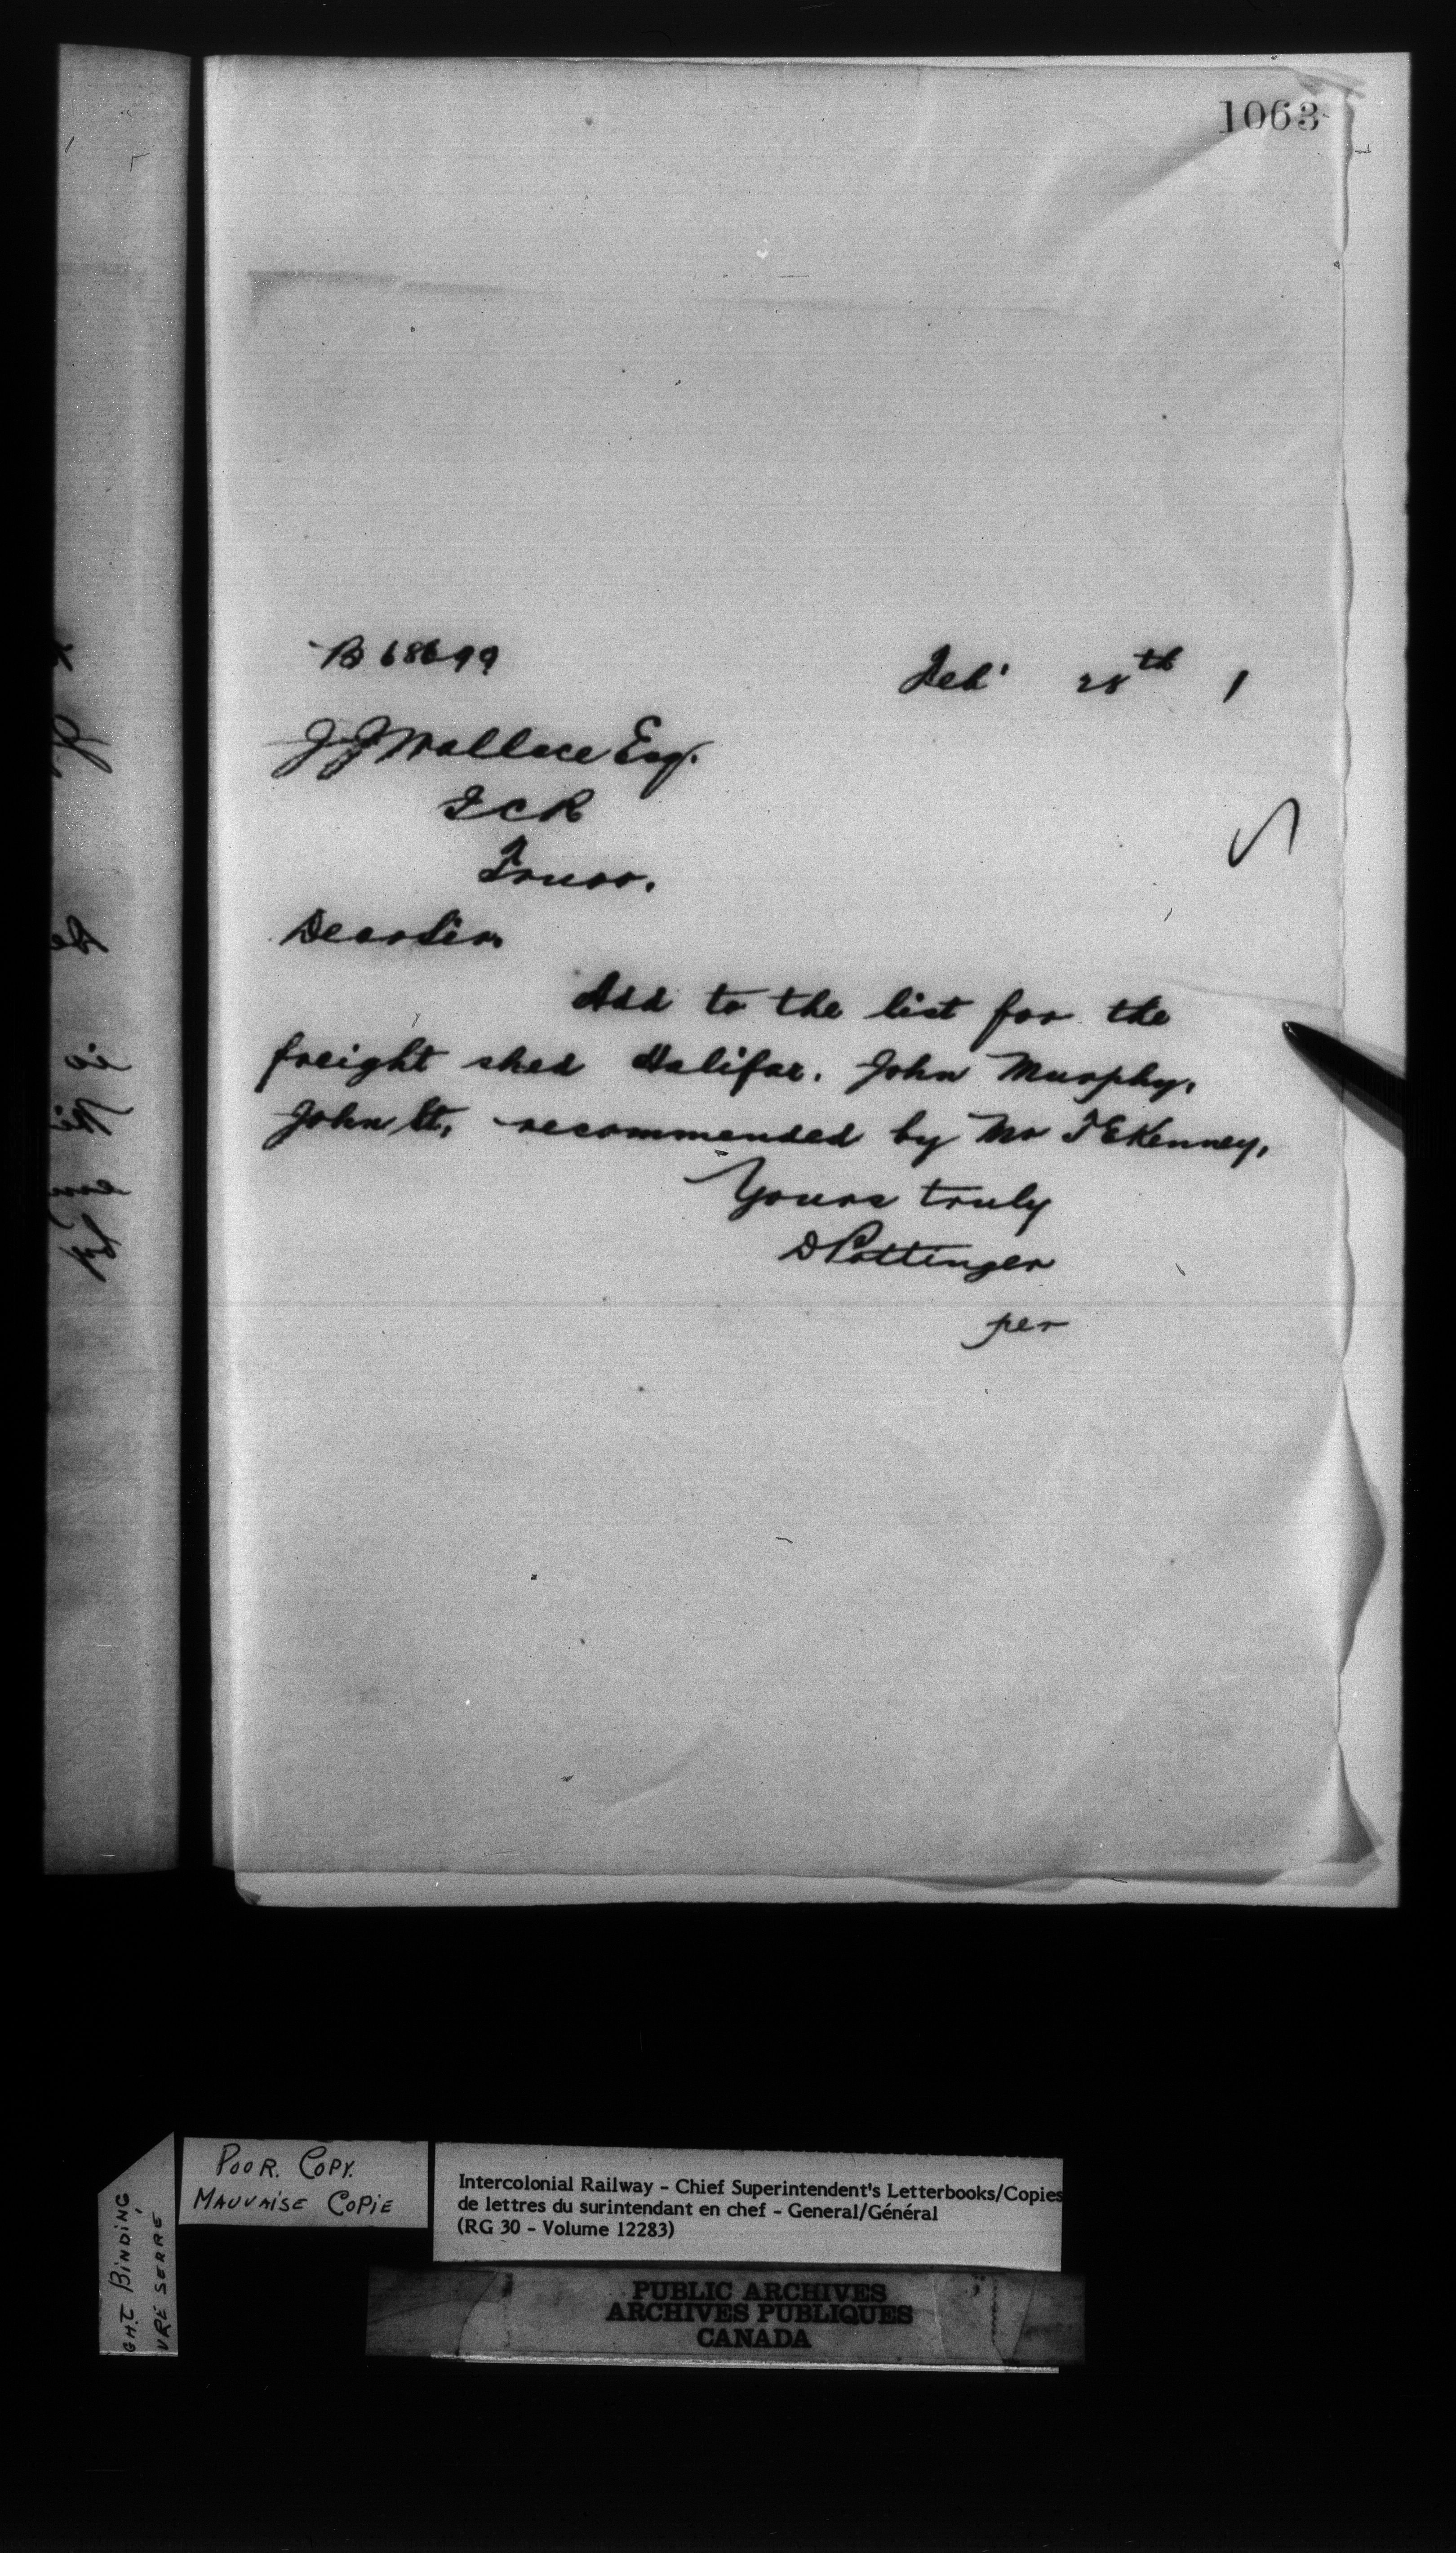 1063
B 68699
Feb' 28th 1
J J Wallace Esq.
ICR
Truro.
Dear Sir
Add to the list for the
freight shed Halifax. John Murphy,
John St, recommended by Mr T E Kenney,
Yours truly
D Pottinger
per
POOR. COPY.
MAUVAISE COPIE
GHT BINDING
VRE SERRÉ
Intercolonial Railway - Chief Superintendent's Letterbooks/Copies
de lettres du surintendant en chef - General/Général
(RG 30 - Volume 12283)
PUBLIC ARCHIVES
ARCHIVES PUBLIQUES
CANADA